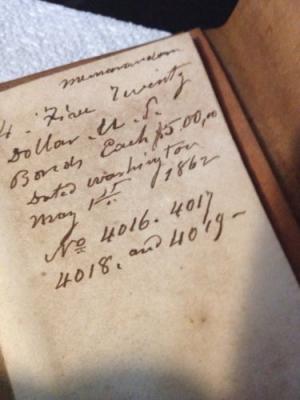 memorandom
4. Five Twenty
Dollar U.S.
Bonds Each $500,00
Dated Washington
May 1st 1862
No 4016. 4017
4018. and 4019-